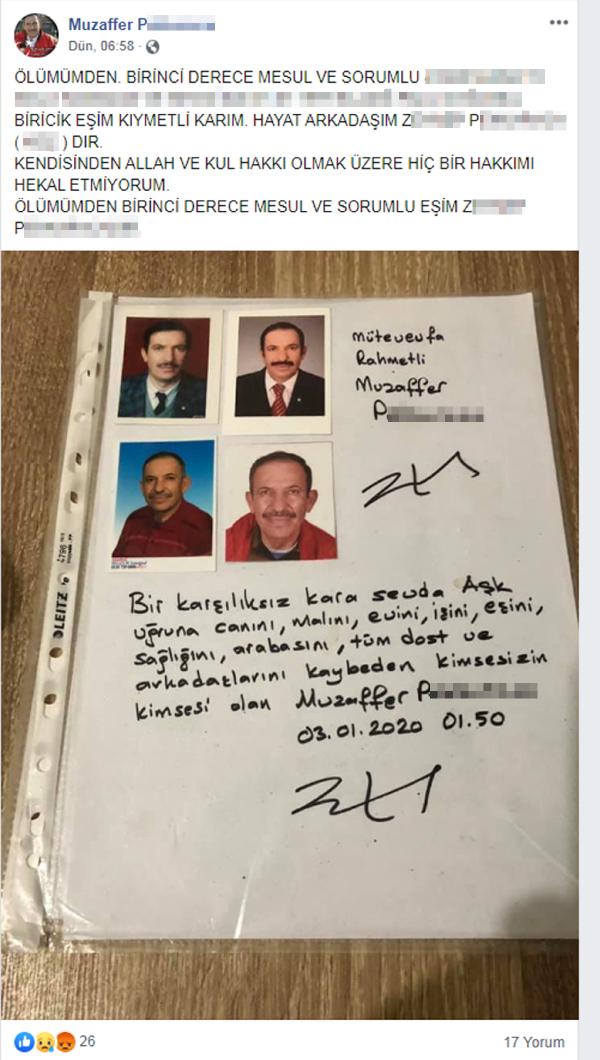 Muzaffer P
Dün, 06:58
ÖLÜMÜMDEN. BİRİNCİ DERECE MESUL VE SORUMLU
BİRİCİK EŞİM KIYMETLİ KARIM. HAYAT ARKADAŞIM Z P
( ) DIR.
KENDİSİNDEN ALLAH VE KUL HAKKI OLMAK ÜZERE HİÇ BİR HAKKIMI
HEKAL ETMİYORUM.
ÖLÜMÜMDEN BİRİNCİ DERECE MESUL VE SORUMLU EŞİM Z
P
Müteveufa
Rahmetli
Muzaffer
P
LEITZ
4796
Bir karşılıksız kara sevda Aşk
uğruna canını, malını, evini, işini, eşini,
sağlığını, arabasını, tüm dost ve
arkadaşlarını kaybeden kimsesizin
kimsesi olan Muzaffer P
03.01.2020 01.50
26
17 Yorum